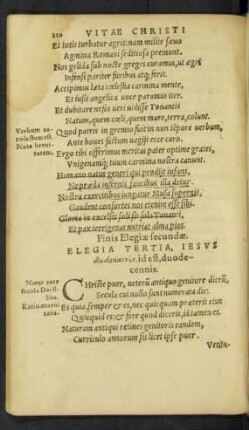 210 VITAE CHRISTI
Et totis turbatur agris: nam milite sæuo
Agmina Romani seditiosa premunt.
Nos gelida sub nocte greges curamus, ut agri
Infensi pariter furibus atq; feris.
Accipimus læta cœlestia carmina mente,
Et iussis angelica uoce paramus iter.
Et dubitare nefis ueri uidisse Tonantis
Natum, quem cœli, quem mare, terra, colunt.
Verbum ex
Quod patris in gremio fuit in non tẽpore uerbum,
Nota
Ante boues factum uagijt ecce caro.
Ergo tibi offerimus meritas pater optime grates,
Vnigenamq; tuum carmina nostra canunt.
Humano natus generi qui prodijt infans,
Ne præda infernis faucibus illa
Nostra exercitibus iungatur Musa supernis,
Gaudent consortes nos etenim esse sibi.
Gloria in excelsis soli sit sola Tonanti,
Et pax terrigenas nutriat alma pios.
Finis Elegiæ secundæ.
ELEGIA TERTIA, IESVS
id est, duode-
cennis.
Natus ante
secula
CHriste puer, ueterũ antiquo genitore
Secula cui nullo sunt numerata die:
Et quia semper & es, nec quicquam præterit
Quicquid ex: & fore quod diceris, id tamen es.
Naturam antiqui retines genitoris eandem,
Curriculo annorum sis licet ipse puer.
Ventu-